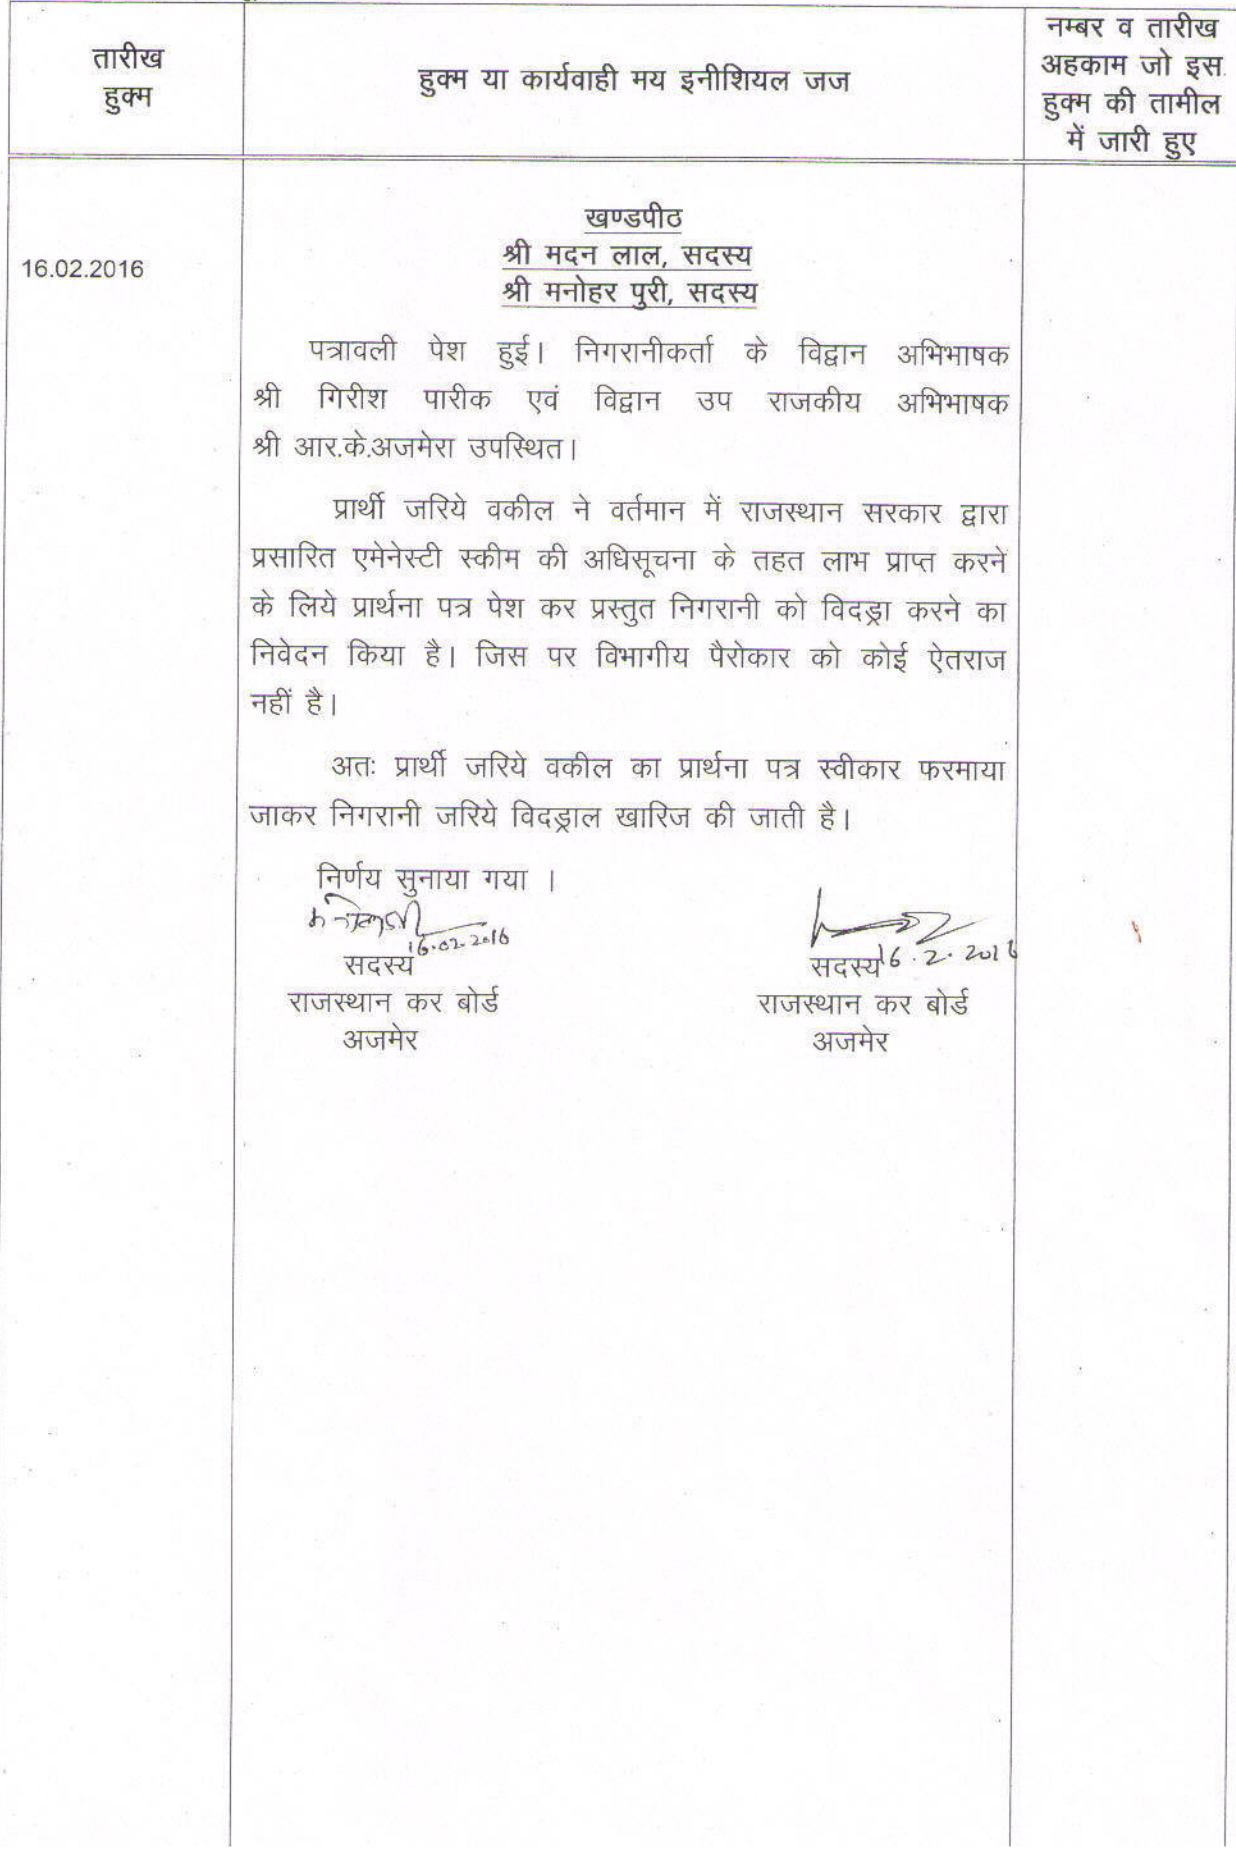 तारीख
हुक्म
हुक्म या कार्यवाही मय इनीशियल जज
नम्बर व तारीख
अहकाम जो इस
हुक्म की तामील
में जारी हुए
16.02.2016
खण्डपीठ
श्री मदन लाल, सदस्य
श्री मनोहर पुरी, सदस्य
पत्रावली पेश हुई। निगरानीकर्ता के विद्वान अभिभाषक
श्री गिरीश पारीक एवं विद्वान उप राजकीय अभिभाषक
श्री आर.के.अजमेरा उपस्थित।
प्रार्थी जरिये वकील ने वर्तमान में राजस्थान सरकार द्वारा
प्रसारित एमेनेस्टी स्कीम की अधिसूचना के तहत लाभ प्राप्त करने
के लिये प्रार्थना पत्र पेश कर प्रस्तुत निगरानी को विदड्रा करने का
निवेदन किया है। जिस पर विभागीय पैरोकार को कोई ऐतराज
नहीं है।
अतः प्रार्थी जरिये वकील का प्रार्थना पत्र स्वीकार फरमाया
जाकर निगरानी जरिये विदड्राल खारिज की जाती है।
निर्णय सुनाया गया ।
16.02.2016
सदस्य
राजस्थान कर बोर्ड
अजमेर
16.2.2016
सदस्य
राजस्थान कर बोर्ड
अजमेर